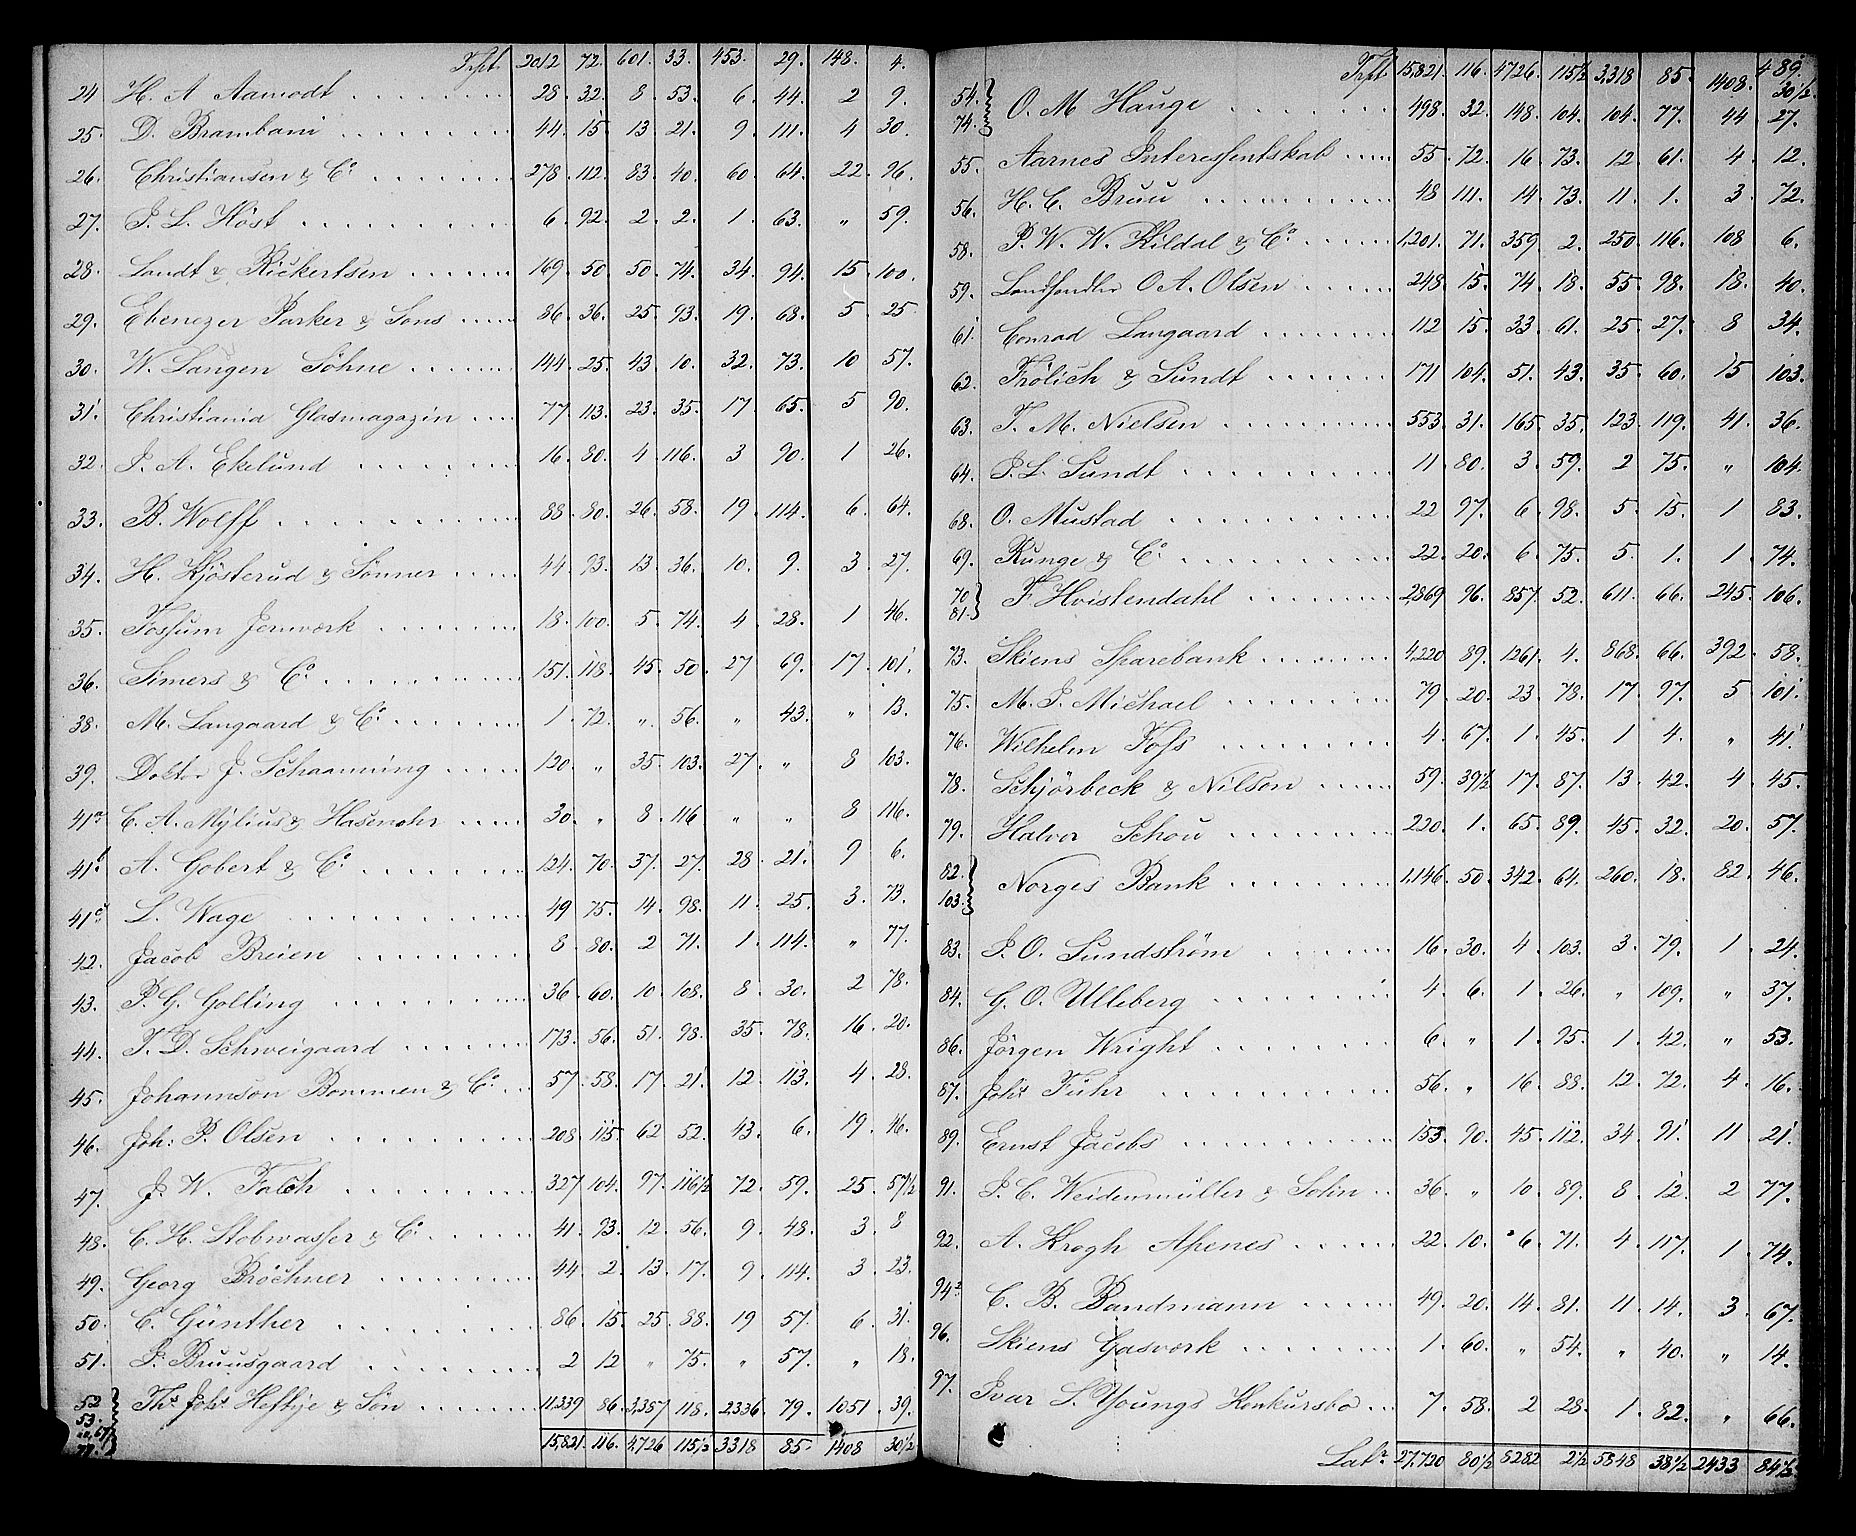 Trspt. 2012 72. 601. 33. 453. 29. 148. 4.
24 H. A Aamodt 28. 32. 8. 53. 6. 44. 2 9.
25. D. Brambani 44. 15. 13. 21. 9. 111. 4 30.
26. Christiansen & Co. 278. 112. 83. 40. 60. 64. 22. 96.
27. P. L. Höst 6. 92. 2. 2. 1. 63. " 59.
28. Landt & Rickertsen 169. 50. 50. 74. 34. 94. 15. 100.
29. Ebenezer Parker & Sons 86. 36. 25. 93. 19. 68. 5. 25.
30. W. Langen Söhne 144. 25. 43. 10. 32. 73. 10 57.
31. Christiania Glasmagazin 77. 113. 23. 35. 17. 65. 5 90.
32. J. A. Ekelund 16. 80. 4. 116. 3 90. 1 26.
33. B. Wolff 88. 80. 26. 58. 19. 114. 6. 64.
34. H. Kjösterud & Sönner 44. 93. 13. 36. 10. 9. 3. 27.
35. Fossum Jernværk 18. 100. 5. 74. 4. 28. 1. 46.
36. Simers & Co. 151. 118. 45. 50. 27 69. 17. 101.
38. M. Langaard & Co. 1. 72. " 56. " 43. " 13.
39. Doktor J. Schaanning 120. " 35. 103. 27. " 8 103.
41a C. A. Mylius & Hasenohr 30. " 8. 116 " " 8 116.
41b A. Gobert & Co. 124. 70. 37. 27. 28. 21. 9 6.
41c L. Wage 49 75. 14. 98. 11. 25. 3. 73.
42. Jacob Breien 8. 80. 2 71. 1. 114. " 77.
43. P. G. Golling 36. 60. 10. 108. 8. 30. 2 78.
44. T. D. Schweigaard 173. 56. 51. 98. 35. 78. 16. 20.
45. Johannson Bommen & Co. 57. 58. 17. 21. 12. 113. 4. 28.
46. Joh: P. Olsen 208. 115. 62 52. 43. 6. 19. 46.
47. J. W. Falch 327 104. 97. 116½ 72. 59. 25. 57½
48. C. H. Stobwasser & Co. 41. 93. 12. 56. 9. 48. 3. 8
49. Georg Bröchner 44. 2. 13. 17. 9. 114. 3. 23.
50. C. Günther 86. 15. 25. 88. 19 57. 6. 31.
51. P. Bruusgaard 2 12 " 75. " 57. " 18.
52 53. Ths. Johs. Heftye & Søn 11,339 86. 3,357 118. 2336. 79. 1051. 39.
15,821. 116. 4,726 115½ 3318 85. 1408 30½
Trspt 15,821. 116. 4726. 115½ 3,318 85. 1408. 30½.
54. 74. O. M Hauge 498. 32. 148. 104. 104. 77. 44 27.
55. Aarnes Interessentskab 55. 72. 16. 73. 12. 61. 4. 12.
56. H. C. Bruu 48 111. 14. 73. 11. 1. 3. 72.
58. P. W. W. Kildal & Co. 1,201. 71. 359 2. 250. 116. 108 6.
59. Landhandler O A. Olsen 248. 15. 74. 18. 55. 98. 18. 40.
61. Conrad Langaard 112 15. 33. 61. 25. 27. 8 34.
62. Frölich & Sundt 171 104. 51. 43. 35. 60. 15. 103.
63. T. M. Nielsen 553. 31. 165. 35. 123. 119. 41. 36.
64. P. L. Sundt 11. 80. 3. 59. 2 75. " 104.
68. O. Mustad 22 97. 6. 98. 5. 15. 1 83.
69. Runge & Co. 22. 20. 6. 75. 5. 1. 1. 74.
70 81. F Hvistendahl 2,869 96. 857. 52. 611. 66. 245. 106.
73. Skiens Sparebank 4,220 89. 1261. 4. 868. 66. 392. 58.
75. M. J. Michael 79. 20. 23. 78. 17. 97. 5 101.
76. Wilhelm Foss 4. 67. 1. 45. 1 4. " 41.
78. Schjörbeck & Nilson 59. 39½ 17. 87. 13. 42. 4. 45.
79. Halvor Schou 220. 1. 65. 89. 45. 32. 20. 57.
82. 103. Norges Bank 1,146. 50. 342. 64. 260. 18. 82. 46.
83. P. O. Sundström 16. 30. 4. 103. 3. 79. 1. 24.
84. G. O. Ulleberg 4. 6. 1. 26. " 109. " 37.
86. Jörgen Wright 6. " 1. 95. 1. 42. " 53.
87. Johs Führ 56. " 16. 88. 12. 72. 4. 16.
89. Ernst Jacobs 153. 90. 45. 112. 34. 91. 11 21.
91. J. C. Weidenmüller & Sohn 36. " 10. 89. 8. 12. 2 77.
92. A. Krogh Apenes 22. 10. 6. 71. 4. 117. 1. 74.
94 C. B. Bandmann 49. 20. 14. 81. 11. 14. 3. 67.
96. Skiens Gasværk 1. 60. " 54. " 40. " 14.
97. Ivar S. Youngs Konkursbo 7. 58. 2 28. 1. 82. " 66.
Latr. 27,720 80½ 8282 2½ 5848 38½ 2433 84½